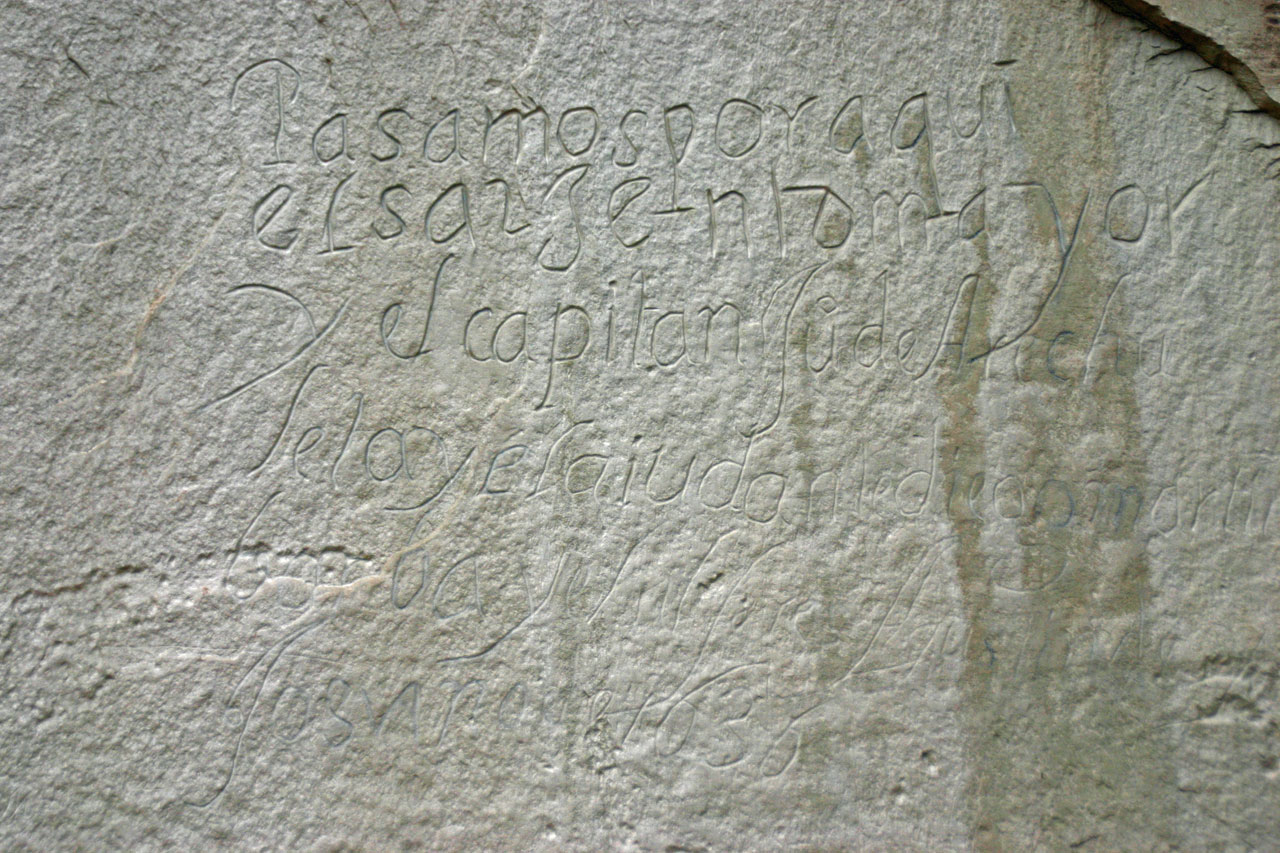 Pasamos por aqui
el sargento mayor
y el capitan Jude Archu
leta y el aiudante diego marti
ba ba y el alferes
Josv 1636